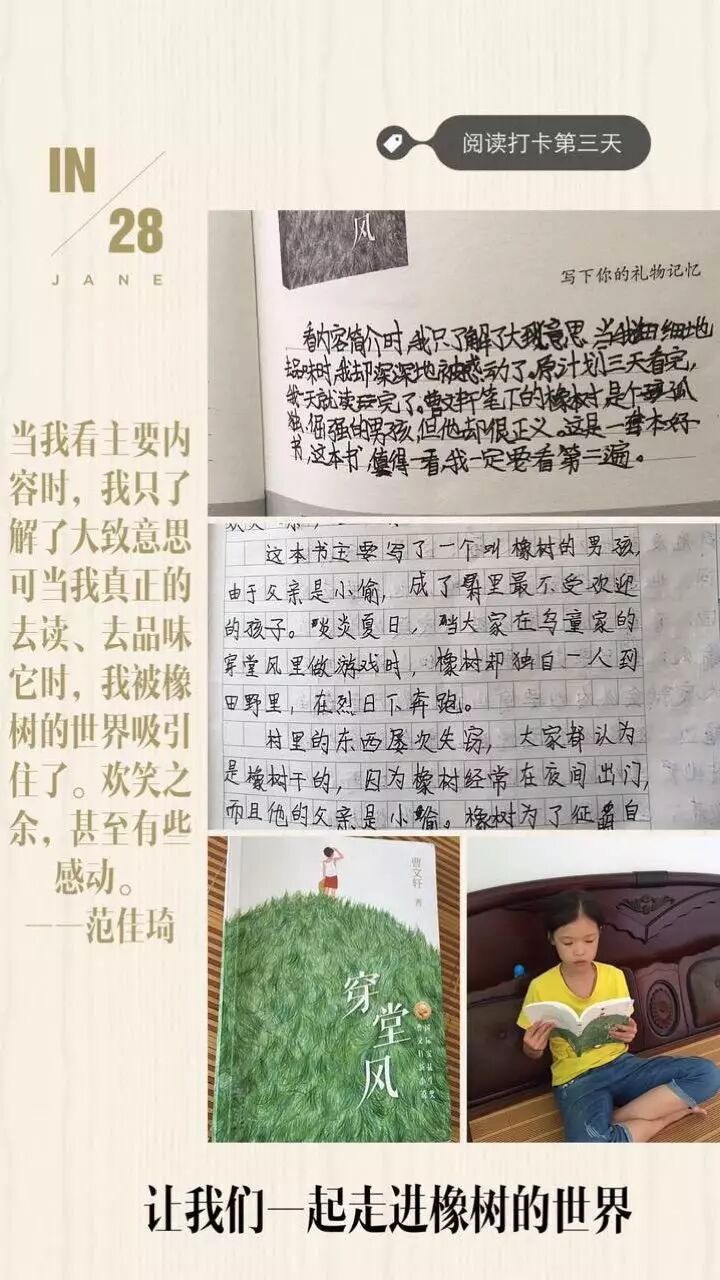 阅读打卡第三天
IN
28
JANE
风
写下你的礼物记忆
看内容简介时,我只了解了大致意思,当我细细地
品味时,我却深深地被感动了。原计划三天看完,
我一天就读完了。曹文轩笔下的橡树,是个孤
独、倔强的男孩,但他却很正义。这是一本好
书,这本书,值得一看,我一定要看第二遍。
当我看主要内
容时,我只了
解了大致意思
可当我真正的
去读、去品味
它时,我被橡
树的世界吸引
住了。欢笑之
余,甚至有些
感动。
——范佳琦
这本书主要写了一个叫橡树的男孩,
由于父亲是小偷,成了村里最不受欢迎
的孩子。炎炎夏日,当大家在乌童家的
穿堂风里做游戏时,橡树却独自一人到
田野里,在烈日下奔跑。
村里的东西屡次失窃,大家都认为
是橡树干的,因为橡树经常在夜间出门,
而且他的父亲是小偷。橡树为了证自
曹文轩 著
穿堂风
让我们一起走进橡树的世界